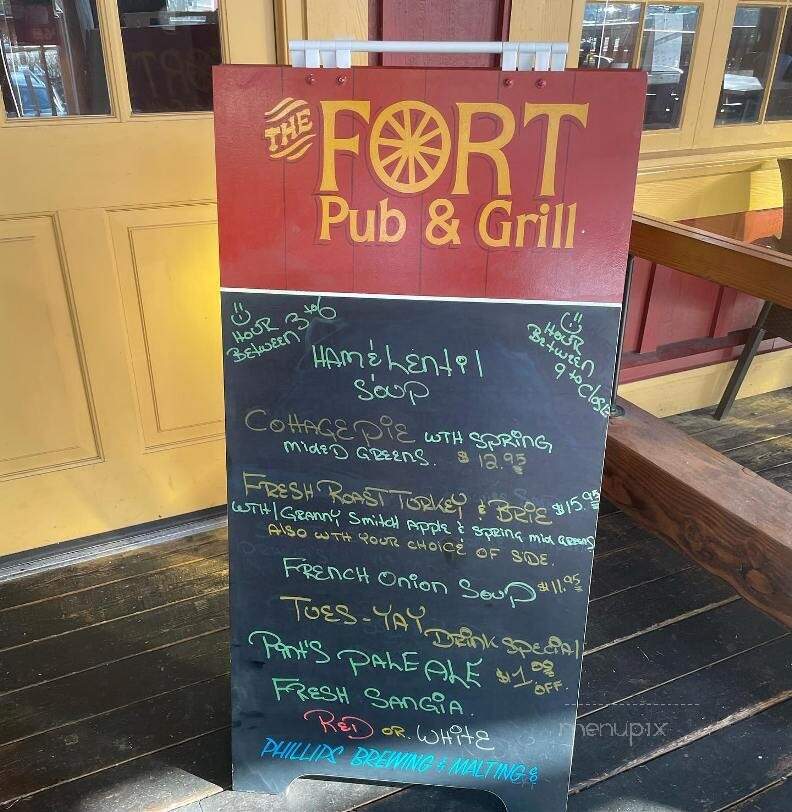 THE FORT
Pub & Grill
HOUR 3 to 6
BETWEEN
HOUR
BETWEEN
9 to Close
HAM & Lentil
Soup
COTTAGE PIE WTH SPRING
MIXED GREENS. $12.95
FRESH ROAST TURKEY & BRIE $15.95
WTH/GRANNY Smitch Apple & SPRING mid GREENS
ALSO WTH YOUR CHOICE OF SIDE.
FRENCH ONION SOUP $11.95
TUES-YAY
DRINK SPECIAL
PINT'S PALE ALE $1.00
OFF.
FRESH SANGIA
RED OR WHITE
PHILLIPS BREWING & MALTING
menupix